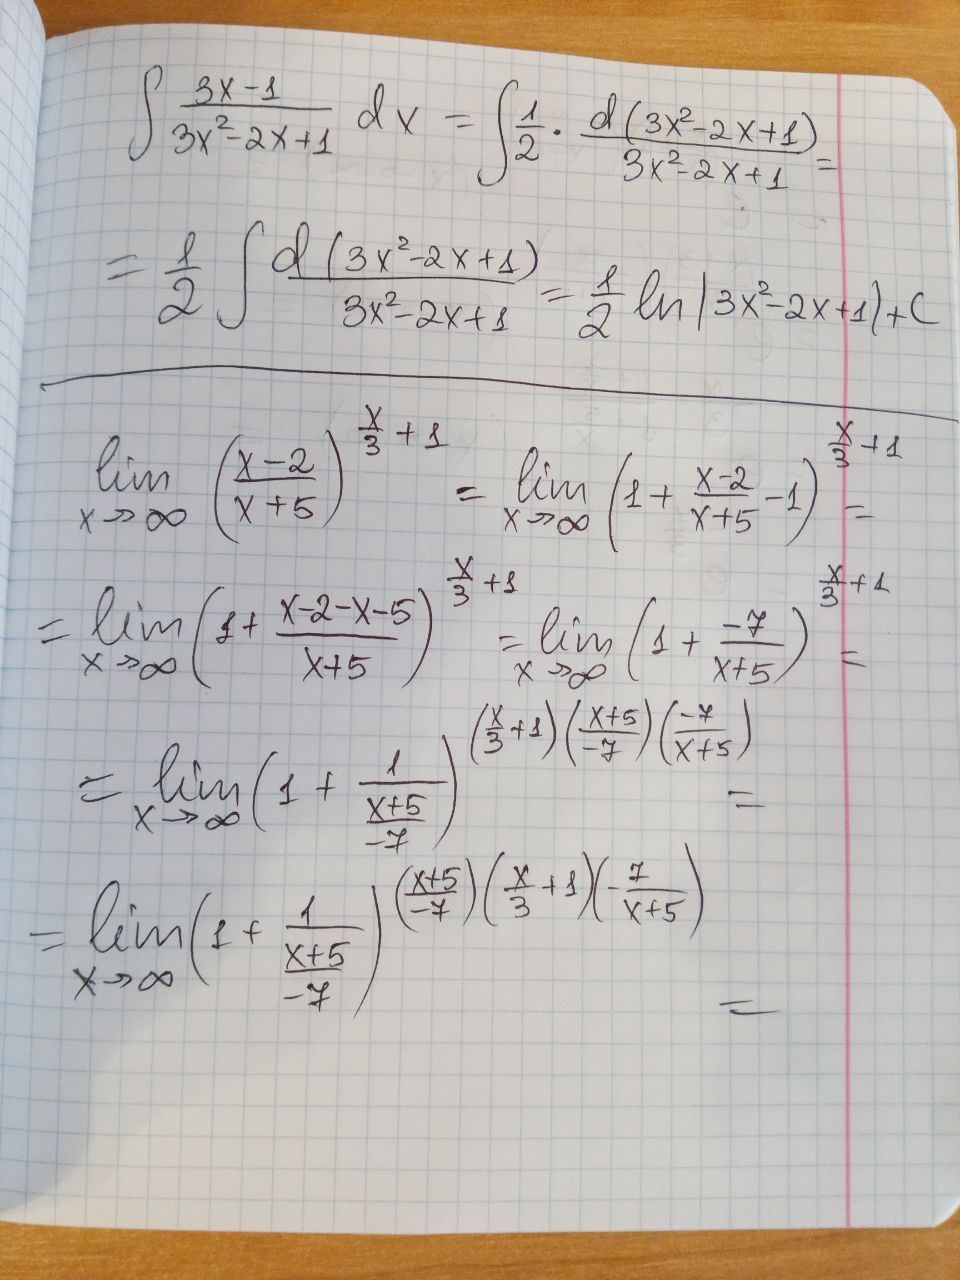 ∫ (3x-1)/(3x²-2x+1) dx = ∫ 1/2 · d(3x²-2x+1)/(3x²-2x+1) =
= 1/2 ∫ d(3x²-2x+1)/(3x²-2x+1) = 1/2 ln|3x²-2x+1|+C
lim x→∞ ((x-2)/(x+5))^(x/3+1) = lim x→∞ (1+(x-2)/(x+5)-1)^(x/3+1) =
= lim x→∞ (1+(x-2-x-5)/(x+5))^(x/3+1) = lim x→∞ (1+(-7)/(x+5))^(x/3+1) =
= lim x→∞ (1+1/((x+5)/(-7)))^((x/3+1)((x+5)/(-7))((-7)/(x+5))) =
= lim x→∞ (1+1/((x+5)/(-7)))^(((x+5)/(-7))(x/3+1)(-7/(x+5))) =